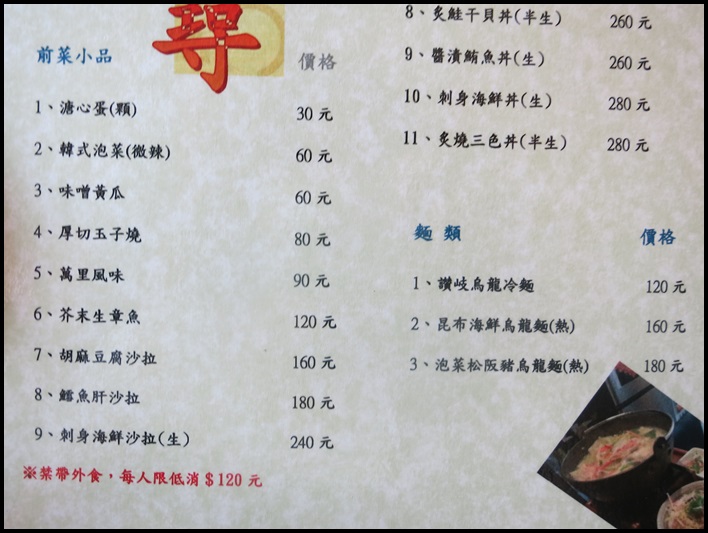 尋
前菜小品 價格
1、溏心蛋(顆) 30 元
2、韓式泡菜(微辣) 60 元
3、味噌黃瓜 60 元
4、厚切玉子燒 80 元
5、萬里風味 90 元
6、芥末生章魚 120 元
7、胡麻豆腐沙拉 160 元
8、鱈魚肝沙拉 180 元
9、刺身海鮮沙拉(生) 240 元
※禁帶外食，每人限低消$120 元
8、炙鮭干貝丼(半生) 260 元
9、醬漬鮪魚丼(生) 260 元
10、刺身海鮮丼(生) 280 元
11、炙燒三色丼(半生) 280 元
麵 類 價格
1、讚岐烏龍冷麵 120 元
2、昆布海鮮烏龍麵(熱) 160 元
3、泡菜松阪豬烏龍麵(熱) 180 元